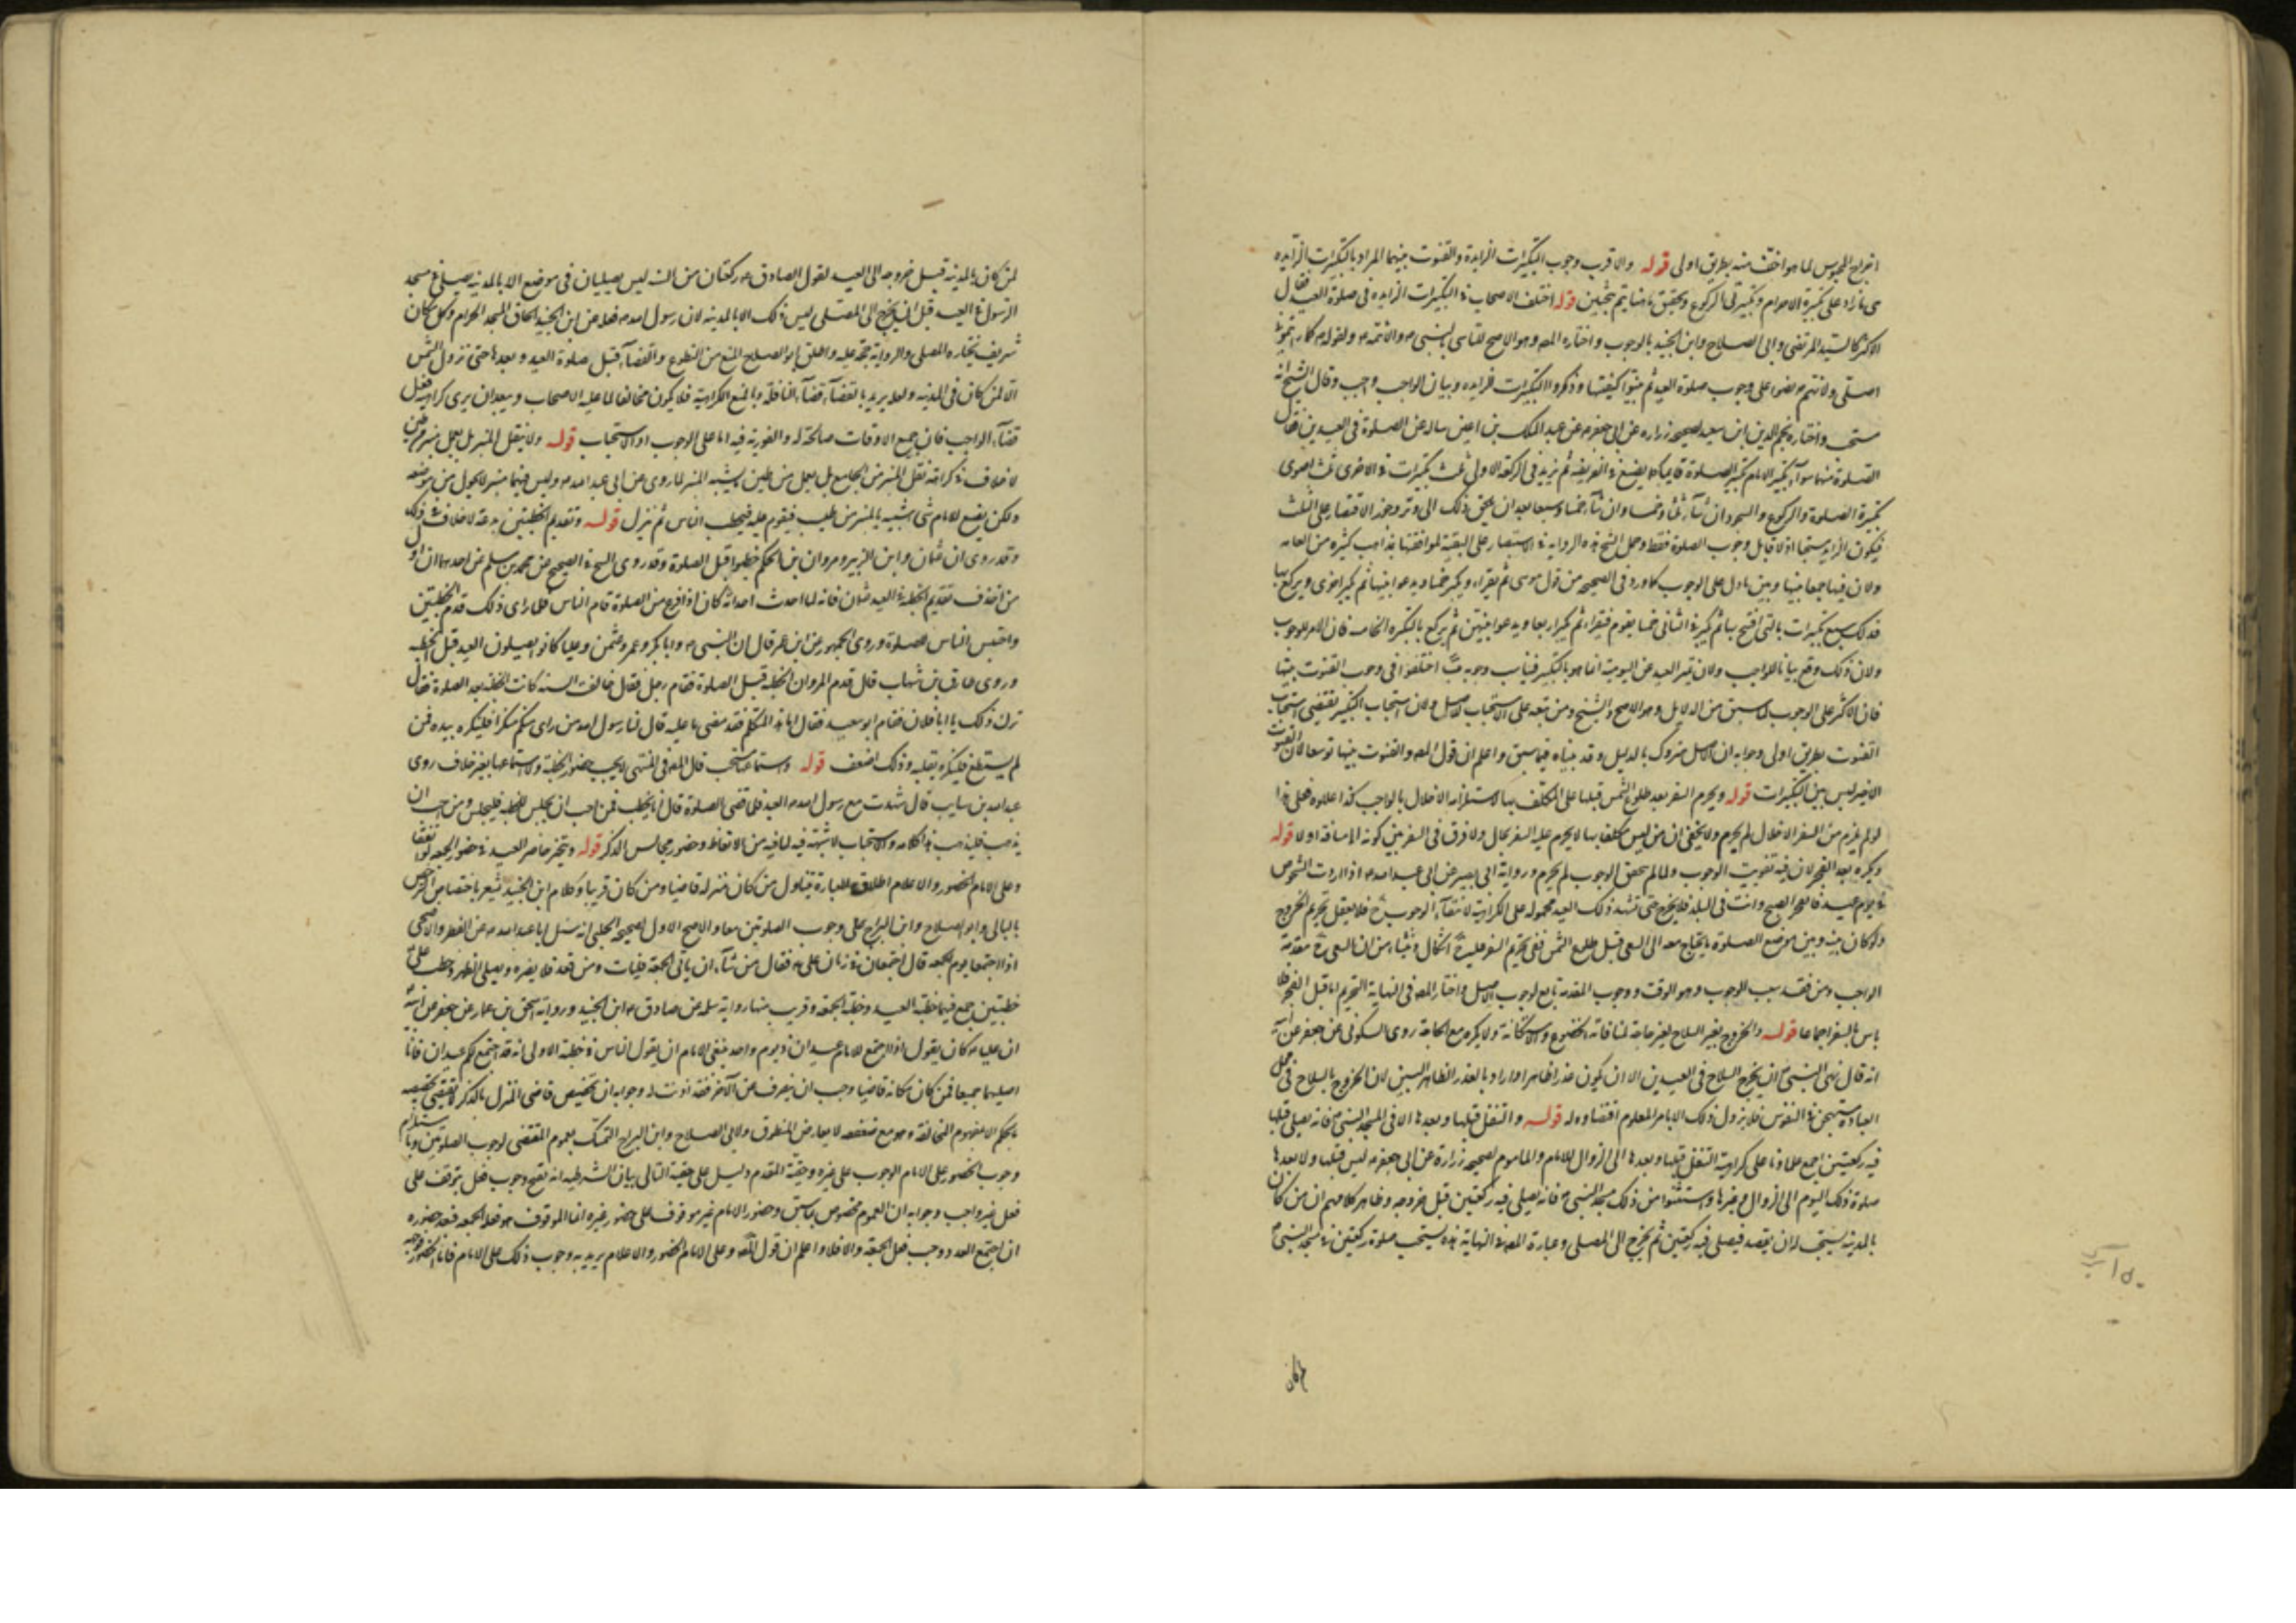 اخراج المحبوس لما هو اخف منه بطريق اولى قوله والاقرب وجوب التكبيرات الزايدة والقنوت بينهما المراد بالتكبيرات الزايده
ى ما زاد على تكبيرة الاحرام وتكبيرتى الركوع وتحقيق ما هنا يتم ببحثين قوله اختلف الاصحاب فى التكبيرات الزايده فى صلوة العيد فقال
الاكثر كالسيد المرتضى وابى الصلاح وابن الجنيد بالوجوب واختاره المصه وهو الاصح للتاسى بالنبى ص والائمه ع ولقوله ص كما رايتمونى
اصلى ولانهم نصوا على وجوب صلوة العيد ثم بينوا كيفيتها وذكروا التكبيرات الزايده وبيان الواجب واجب وقال الشيخ انه
مستحب واختاره نجم الدين ابن سعيد لصحيحه زراره عن ابى جعفر ع عن عبد الملك بن اعين ساله عن الصلوة فى العيدين فقال
الصلوة فيهما سوآء يكبر الامام تكبير الصلوة قايما كما يصنع فى الفريضه ثم يزيد فى الركعه الاولى ثلث تكبيرات فى الاخرى ثلث سوى
تكبيرة الصلوة والركوع والسجود ان شآء ثلثا وخمسا وان شآء خمسا وسبعا بعد ان يلحق ذلك الى وتر وجوز الاقتصار على الثلث
فيكون الزايد مستحبا اذ لا قايل وجوب الصلوة فقط وحمل الشيخ هذه الروايه فى الاستبصار على التقيه لموافقتها مذاهب كثيره من العامه
ولان فيها جمعا بينها وبين ما دل على الوجوب كما ورد فى الصحيح من قول موسى ثم يقراء ويكبر خمسا ويدعوا بينها ثم يكبر اخرى ويركع بها
فذلك سبع تكبيرات بالتى افتتح بها ثم يكبر فى الثانى خمسا يقوم فيقراء ثم يكبر اربعا ويدعوا بينهن ثم يركع بالتكبيره الخامسه فان الامر للوجوب
ولان ذلك وقع بيانا للواجب ولان تميز العيد عن اليومية انما هو بالتكبير فيناسب وجوبه اختلفوا فى وجوب القنوت بينها
فان الاكثر على الوجوب لما سبق من الدلايل وهو الاصح والشيخ ومن تبعه على الاستحباب للاصل ولان استحباب التكبير يقتضى استحباب
القنوت بطريق اولى وجوابه ان الاصل متروك بالدليل وقد بيناه فيما سبق واعلم ان قول المصه والقنوت بينها توسعا لان القنوت
الاخير ليس بين التكبيرات قوله ويحرم السفر بعد طلوع الشمس قبلها على المكلف بها لاستلزامه الاخلال بالواجب كذا علله فعلى هذا
لو لم يلزم من السفر الاخلال لم يحرم ولا يخفى ان من ليس مكلفا بها لا يحرم عليه السفر بحال ولا فرق فى السفر بين كونه الى مسافة اولا قوله
ويكره بعد الفجر لان فيه تفويت الوجوب ولما لم يتحقق الوجوب لم يحرم ورواية ابى بصير عن ابى عبد الله ع اذا اردت الشخوص
فى يوم عيد فانفجر الصبح وانت فى البلد فلا تخرج حتى تشهد ذلك العيد محموله على الكراهية لانتفآء الوجوب ح فلا يعقل تحريم الخروج
ولو كان بينه وبين موضع الصلوة ما يحتاج معه الى السعى قبل طلوع الشمس ففى تحريم السفر عليه ح اشكال ومنشاءه من ان السعى ح مقدمة
الواجب ومن فقد سبب الوجوب وهو الوقت ووجوب المقدمه تابع لوجوب الاصل واختار المصه فى النهاية التحريم اما قبل الفجر فلا
باس بالسفر اجماعا قوله والخروج بغير السلاح لغير حاجة لمنافاته الخضوع والاستكانة ولا يكره مع الحاجة روى السكونى عن جعفر عن ابيه
انه قال نهى النبى ص ان يخرج السلاح فى العيدين الا ان يكون عدو ظاهر اراد بالعدو الظاهر البين لان الخروج بالسلاح فى محل
العبادة مستهجن فى النفوس فلا يزول ذلك الا بامر معلوم اقتضاوه له قوله والتنفل قبلها وبعدها الا فى المسجد النبى ص فانه يصلى قبلها
فيه ركعتين اجمع علماؤنا على كراهية التنفل قبلها وبعدها الى الزوال للامام والماموم لصحيحه زرارة عن ابى جعفر ع ليس قبلها ولا بعدها
صلوة ذلك اليوم الى الزوال وغيرها واستثنوا من ذلك مسجد النبى ص فانه يصلى فيه ركعتين قبل خروجه وظاهر كلامهم ان من كان
بالمدينه يستحب له ان يقصد فيصلى فيه ركعتين ثم يخرج الى المصلى وعبارة المصه فى النهاية هذه يستحب صلوة ركعتين فى مسجد النبى ص
لمن كان
لمن كان بالمدينه قبل خروجه الى العيد لقول الصادق ع ركعتان من السنه ليس يصليان فى موضع الا بالمدينه يصلى فى مسجد
الرسول فى العيد قبل ان يخرج الى المصلى ليس ذلك الا بالمدينه لان رسول الله ص فعله عن ابن الجنيد الحاق المسجد الحرام وكل مكان
شريف يجتازه المصلى والرواية حجة عليه واطلق ابو الصلاح المنع من التطوع والقضآء قبل صلوة العيد وبعدها حتى تزول الشمس
الا لمن كان فى المدينه ولعله يريد بالقضآء قضآء النافلة وبالمنع الكراهية فلا يكون مخالفا لما عليه الاصحاب ويبعد ان يرى كراهية فعل
قضآء الواجب فان جميع الاوقات صالحة له والفوريه فيه اما على الوجوب او الاستحباب قوله ولا ينقل المنبر بل يعمل منبر من طين
لا خلاف فى كراهة نقل المنبر من الجامع بل يعمل من طين يشبه المنبر لما روى عن ابى عبد الله ع وليس فيهما منبر لا يحول من موضعه
ولكن يصنع للامام شى شبيه بالمنبر من طين فيقوم عليه فيخطب الناس ثم ينزل قوله وتقديم الخطبتين بدعة لا خلاف فى ذلك
وقد روى ان عثمان وابن الزبير ومروان بن الحكم خطبوا قبل الصلوة وقد روى الشيخ فى الصحيح عن محمد بن مسلم عن احدهما ان اول
من احدث تقديم الخطبه فى العيد عثمان فانه لما احدث احداثه كان اذا فرغ من الصلوة قام الناس فلما راى ذلك قدم الخطبتين
واحتبس الناس للصلوة وروى الجمهور عن ابن عمر قال ان النبى ص وابا بكر وعمر وعثمن وعليا كانوا يصلون العيد قبل الخطبه
وروى طارق بن شهاب قال قدم المروان الخطبه قبل الصلوة فقام رجل فقال خالفت السنه كانت الخطبه بعد الصلوة فقال
ترك ذلك يا ابا فلان فقام ابو سعيد فقال اما هذا المتكلم فقد قضى ما عليه قال لنا رسول الله من راى منكم منكرا فلينكره بيده فمن
لم يستطع فلينكره بقلبه وذلك اضعف قوله واستماعها مستحب قال المصه فى المنتهى لا يجب حضور الخطبة ولا استماعها بغير خلاف روى
عبد الله بن سايب قال شهدت مع رسول الله ص العيد فلما قضى الصلوة قال انا نخطب فمن احب ان يجلس للخطبه فليجلس ومن احب ان
يذهب فليذهب هذا كلامه والاستحباب لا شبهة فيه لما فيه من الاتعاظ وحضور مجالس الذكر قوله ويتخير حاضر العيد فى حضور الجمعه لو اتفقا
وعلى الامام الحضور والاعلام اطلاق العبارة يتناول من كان منزله قاصيا ومن كان قريبا وكلام ابن الجنيد يشعر باختصاص الرخص
بالنائى وابو الصلاح وابن البراج على وجوب الصلوتين معا والاصح الاول لصحيحه الحلبى انه سئل ابا عبد الله ع عن الفطر والاضحى
اذا اجتمعا يوم الجمعه قال اجتمعا فى زمان على ع فقال من شآء ان ياتى الجمعة فليات ومن قعد فلا يضره وليصلى الظهر وخطب على ع
خطبتين جمع فيهما خطبة العيد وخطبة الجمعة وقريب منها رواية سلمه عن صادق ع ابن الجنيد ورواية اسحق بن عمار عن جعفر عن ابيه
ان عليا ع كان يقول اذا اجتمع للامام عيدان فى يوم واحد ينبغى للامام ان يقول الناس فى خطبة الاولى انه قد اجتمع لكم عيدان فانا
اصليهما جميعا فمن كان مكانه قاصيا واحب ان ينصرف عن الآخر فقد اذنت له وجوابه ان تخصيص قاصى المنزل بالذكر لا يقتضى تخصيصه
بالحكم الا بمفهوم المخالفة وهو مع ضعفه لا يعارض المنطوق ولابى الصلاح وابن البراج التمسك بعموم المقتضى لوجوب الصلوتين وباستلزام
وجوب الحضور على الامام الوجوب على غيره وحقيقة المقدم دليل على حقية التالى بيان الشرطيه انه يقبح وجوب فعل يتوقف على
فعل غير واجب وجوابه ان العموم مخصوص بما سبق وحضور الامام غير موقوف على حضور غيره انما الموقوف هو فعل الجمعه فبعد حضوره
ان اجتمع العدد وجب فعل الجمعة والا فلا واعلم ان قول المصه وعلى الامام الحضور والاعلام يريد به وجوب ذلك على الامام فاما الحضور فوجهه